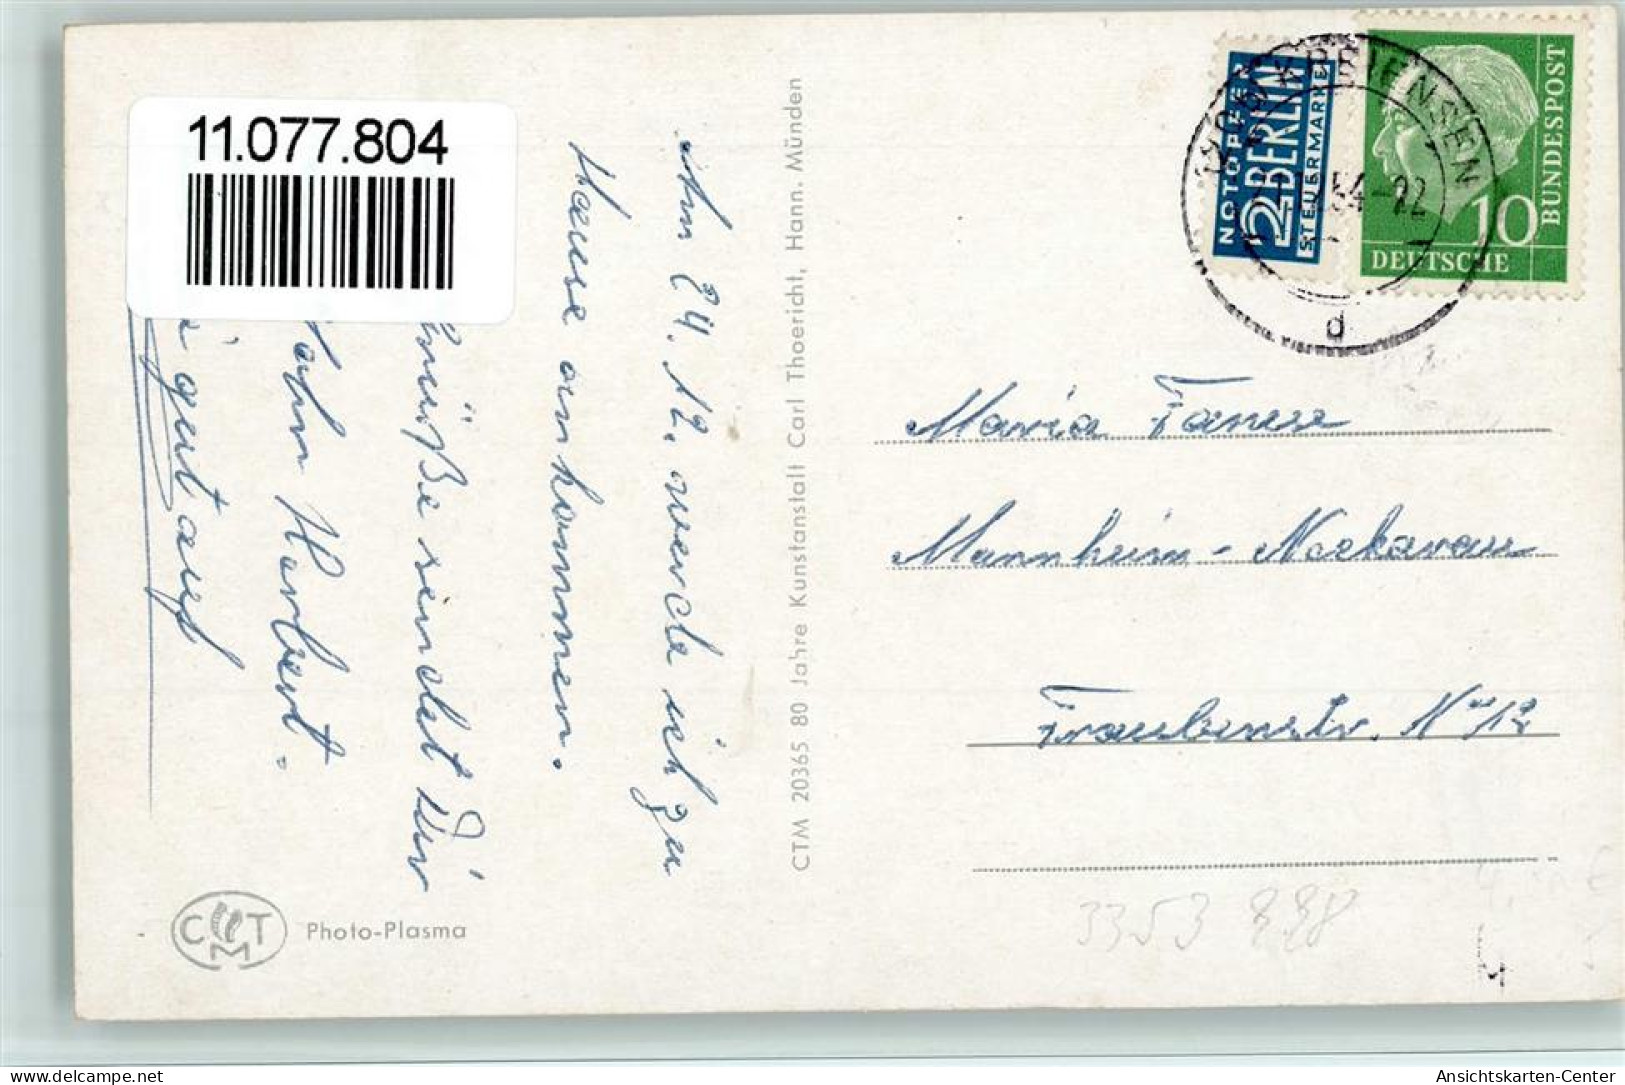 11.077.804
Am 24. 12. werde ich zu
Hause ankommen.
Grüße sendet Dir
Herbert.
gut auf
CTM 20365 80 Jahre Kunstanstalt Carl Thoericht, Hann. Münden
CTM Photo-Plasma
NOTOPFER
2 BERLIN
STEUERMARKE
KREIENSEN
54-22
d
10
DEUTSCHE
BUNDESPOST
Maria
Mannheim - Neckarau
Traubenstr. Nr 12
3353
delcampe.net
Ansichtskarten-Center